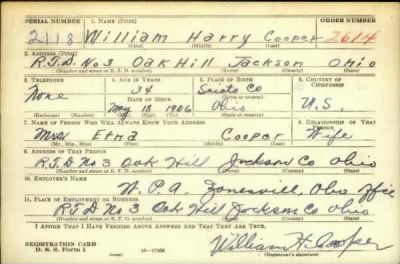 SERIAL NUMBER 1. NAME (Print) ORDER NUMBER
2118 William Harry Cooper 2614
(First) (Middle) (Last)
2. ADDRESS (Print)
R.F.D. No 3 Oak Hill Jackson Ohio
(Number and street or R. F. D. number) (Town) (County) (State)
3. TELEPHONE 4. AGE IN YEARS 5. PLACE OF BIRTH 6. COUNTRY OF CITIZENSHIP
None 34 Scioto Co U.S.
DATE OF BIRTH
May 18 1906 Ohio
(Exchange) (Number) (Mo.) (Day) (Yr.) (State or country)
7. NAME OF PERSON WHO WILL ALWAYS KNOW YOUR ADDRESS 8. RELATIONSHIP OF THAT PERSON
Mrs Etna Cooper Wife
(Mr., Mrs., Miss) (First) (Middle) (Last)
9. ADDRESS OF THAT PERSON
R.F.D No 3 Oak Hill Jackson Co Ohio
(Number and street or R. F. D. number) (Town) (County) (State)
10. EMPLOYER'S NAME
W.P.A. Zanesvill, Ohio office
11. PLACE OF EMPLOYMENT OR BUSINESS
R.F.D No 3 Oak Hill Jackson Co Ohio
(Number and street or R. F. D. number) (Town) (County) (State)
I AFFIRM THAT I HAVE VERIFIED ABOVE ANSWERS AND THAT THEY ARE TRUE.
REGISTRATION CARD
D. S. S. Form 1
William H Cooper
(Registrant's signature)